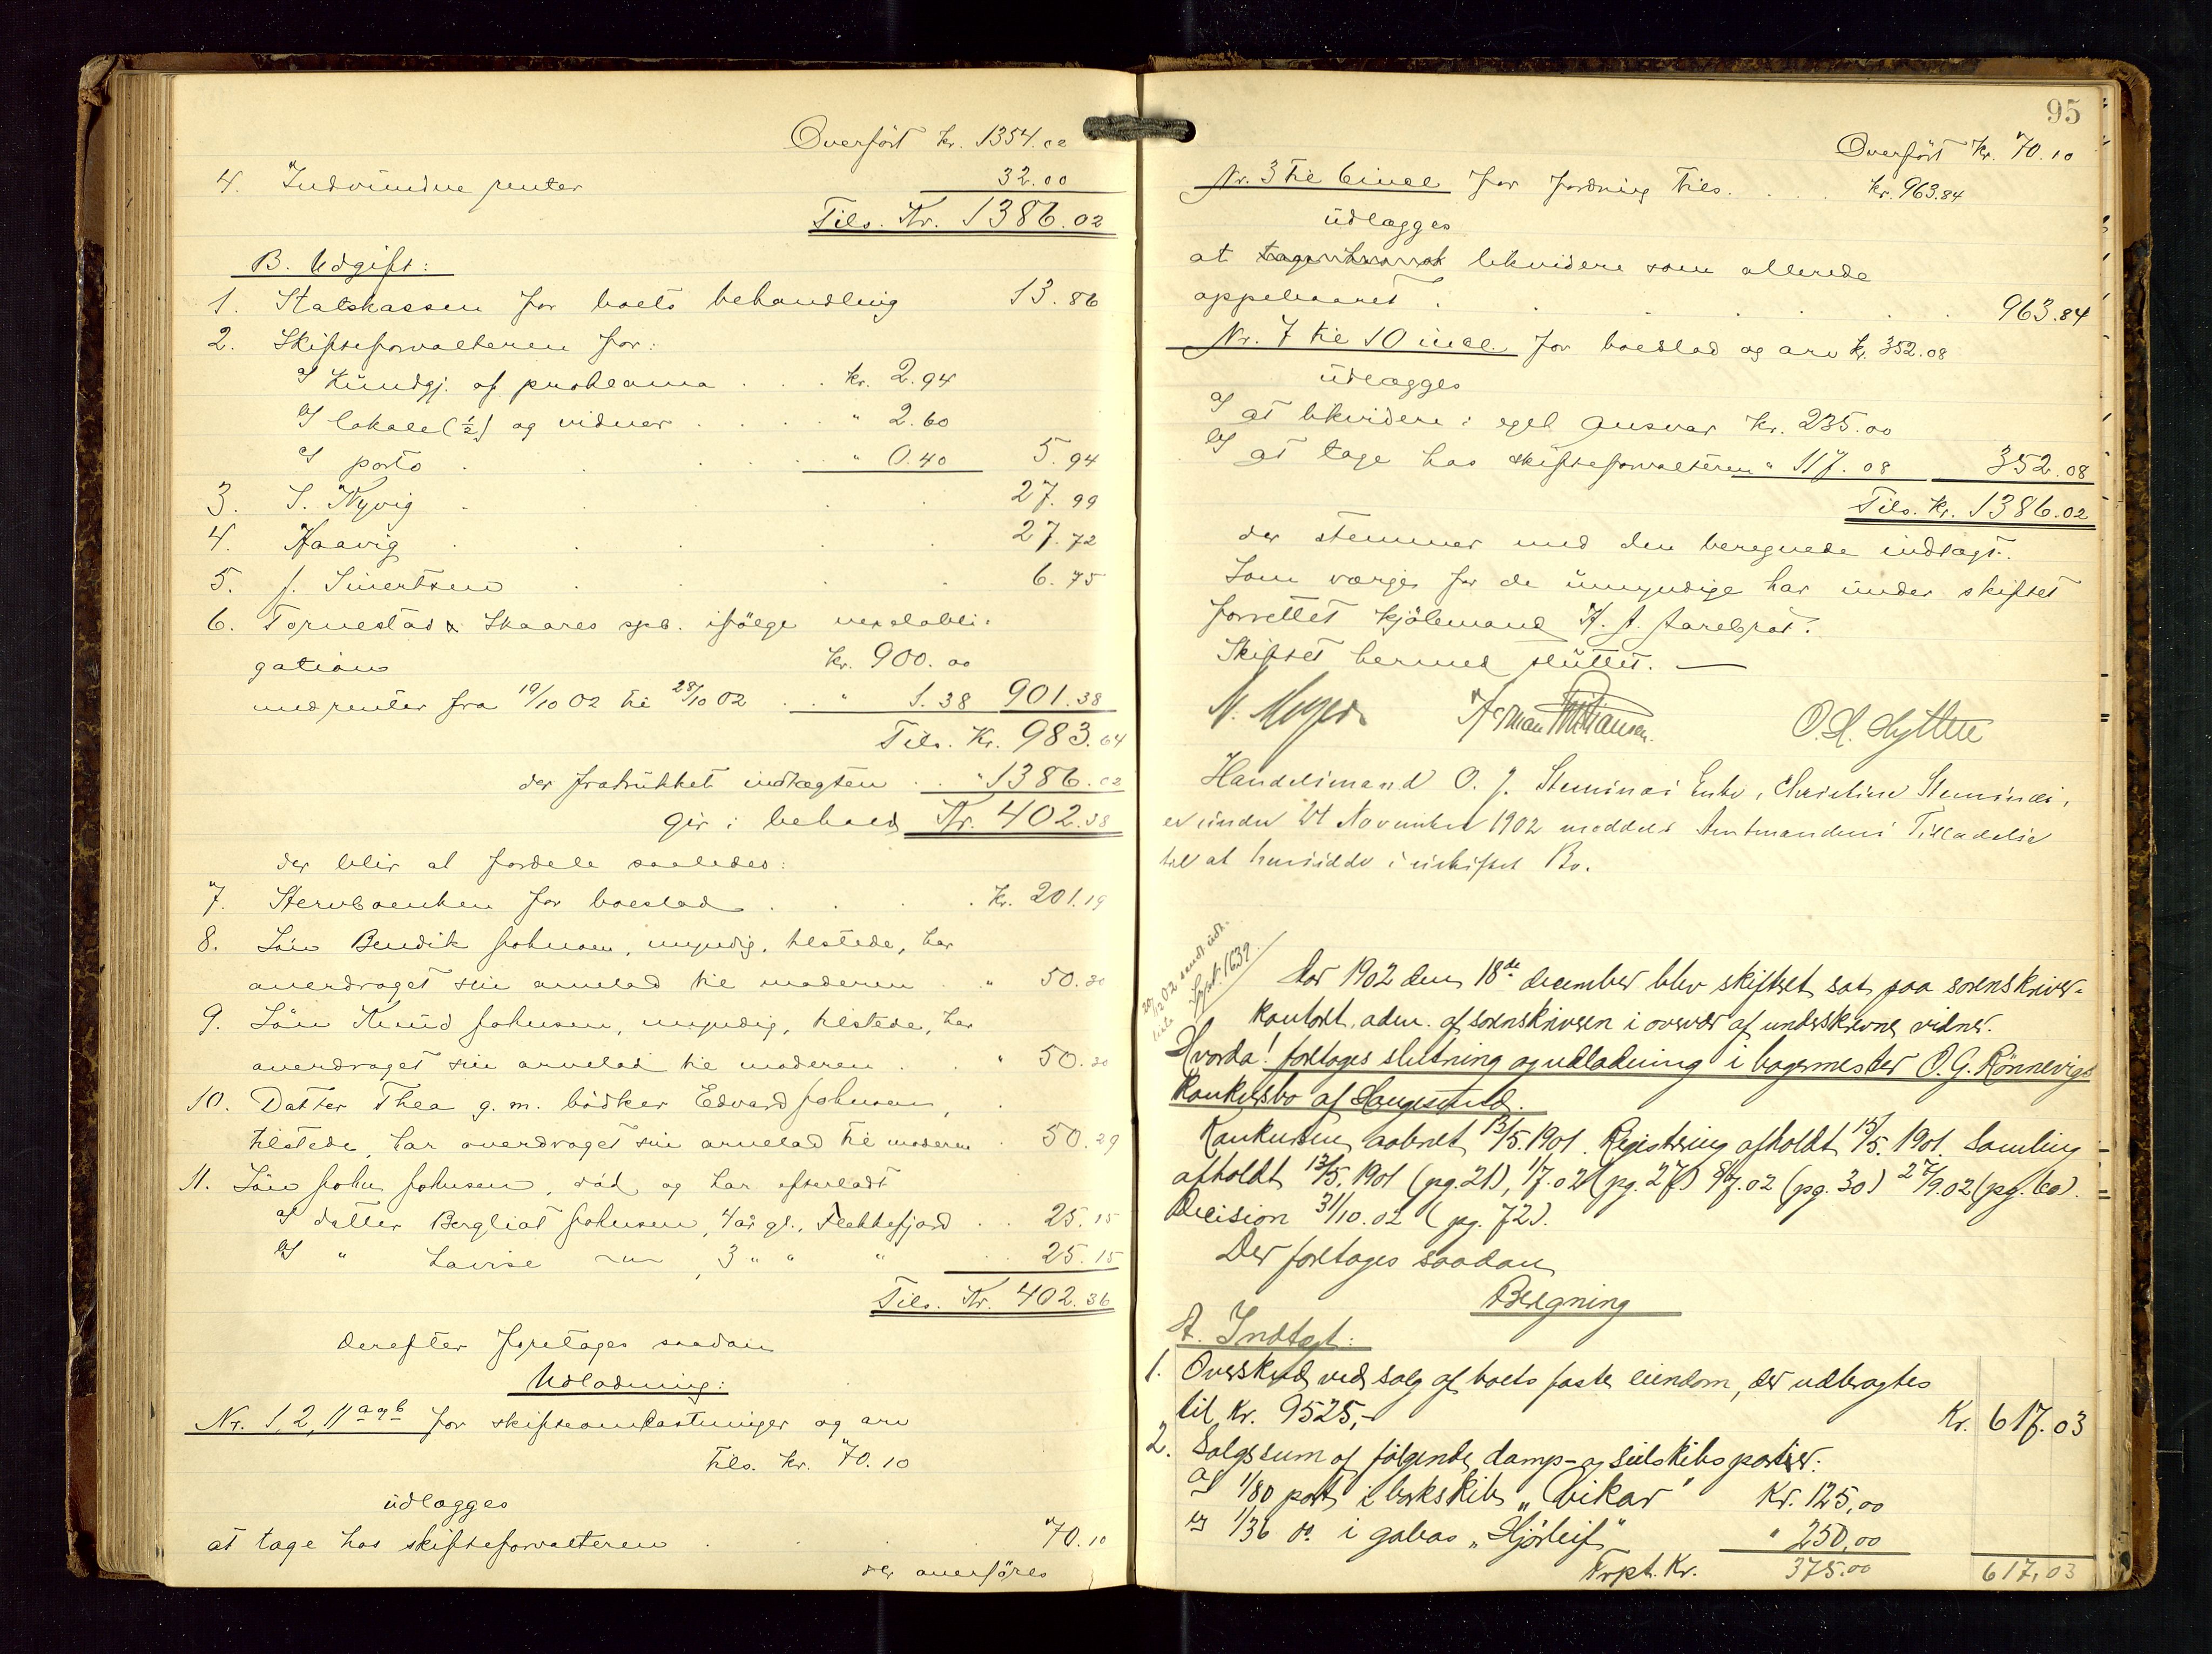 Overført kr. 1354.02
4. Indvundne renter 32.00
Tils. Kr. 1386.02
B. Udgift:
1. Statskassen for boets behandling 13.86
2. Skifteforvalteren for:
a) Kundgj. af proklama . . . kr. 2.94
b) lokale (1/2) og vidner . . . . " 2.60
c) porto . . . . " 0.40 5.94
3. S. Nyvig . . . 27.99
4. Haavig . . . 27.72
5. J. Sivertsen . . . 6.75
6. Tornestad & Skaares spb. ifølge vexelobli-
gation kr. 900.00
med renter fra 19/10 02 til 28/10 02 . . " 1.38 901.38
Tils. Kr. 983.64
der fratrukket indtægten . . " 1386.02
gir i behold Kr. 402.38
der blir at fordele saaledes:
7. Stervboenken for boeslod . . . Kr. 201.19
8. Søn Bendik Johnsen, myndig, tilstede, har
overdraget sin arvelod til moderen . " 50.30
9. Søn Knud Johnsen, myndig, tilstede, har
overdraget sin arvelod til moderen . . " 50.30
10. Datter Thea g. m. bødker Edvard Johnsen,
tilstede, har overdraget sin arvelod til moderen . 50.29
11. Søn John Johnsen, død og har efterladt
a) datter Bergliot Johnsen, 4 år gl., Flekkefjord . . 25.15
b) " Lovise — " — , 3 " " " . . 25.15
Tils. Kr. 402.36
derefter foretages saadan
Udlodning:
Nr. 1, 2, 11 a og b for skifteomkostninger og arv
tils. kr. 70.10
udlægges
at tage hos skifteforvalteren . . . 70.10
der overføres
95
Overført Kr. 70.10
Nr. 3 til 6 incl. for fordring tils. . . . kr. 963.84
udlægges
at likvidere som allerede
oppebaaret . . . . . 963.84
Nr. 7 til 10 incl. for boeslod og arv k. 352.08
udlægges
a) at likvidere i eget ansvar kr. 235.00
b) at tage hos skifteforvalteren " 117.08 352.08
Tils. kr. 1386.02
der stemmer med den beregnede indtægt.
Som værge for de umyndige har under skiftet
forrettet kjølemand H. J. Aarebrot.
Skiftet hermed sluttet. —
N. Meyer. Herman Johansen. O. H. Hytten
Handelsmand O. J. Steminæs Enke, Christine Steminæs,
er under 24 November 1902 meddelt Amtmandens Tilladelse
til at hensidde i uskiftet Bo.
sendt udt.
Aar 1902 den 18de december blev skifteret sat paa sorenskriver-
kontoret, adm. af sorenskriveren i overvær af underskrevne vidner.
Hvorda! foretages slutning og udlodning i bagermester O. G. Rønnevigs
konkursbo af Haugesund.
Konkursen aabnet 13/5. 1901. Registrering afholdt 15/5. 1901. Samling
afholdt 13/5. 1901 (pg. 21), 1/7. 02 (pg. 27) 8/7. 02 (pg. 30) 27/9. 02 (pg. 60).
Decision 31/10. 02 (pg. 72).
Der foretages saadan
Beregning
A. Indtægt:
1. Overskud ved salg af boets faste eiendom, der udbragtes
til Kr. 9525,- Kr. 617.03
2. Salgssum af følgende damp- og seilskibsparter:
a) 1/80 part i barkskib „Vikar" Kr. 125,00
b) 1/36 do. i galeas „Hjørleif" " 250,00
Trpt. Kr. 375.00 617,03